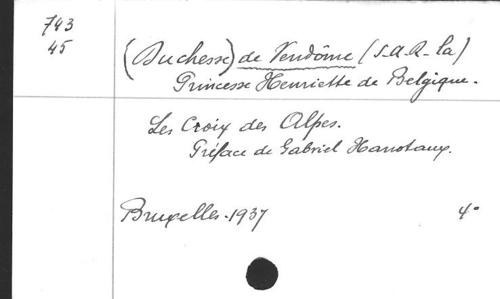 743
45
(Duchesse) de Vendôme (S.A.R. la)
Princesse Henriette de Belgique.
Les Croix des Alpes.
Préface de Gabriel Hanotaux.
Bruxelles. 1937
4°